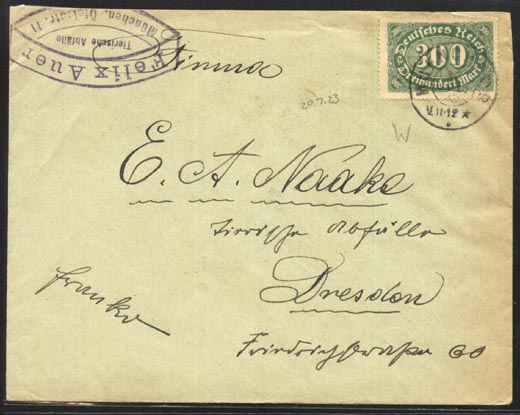 Felix Auer
Tierische Abfälle
München, Ofelestr. 11
Deutsches Reich
300
Dreihundert Mark
V.11-12 ★
Firma
20.7.23
W
E. A. Naake
tierische Abfälle
Dresden
Friedrichstraße 60
Franko